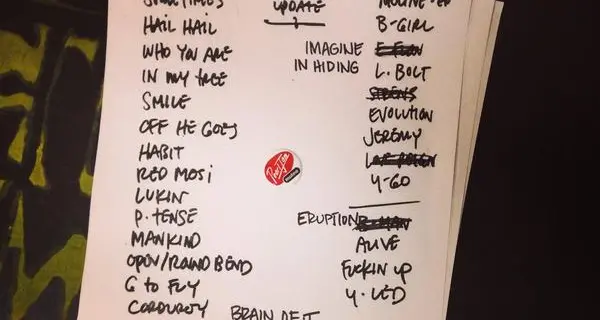 SOMETIMES
HAIL HAIL
WHO YOU ARE
IN MY TREE
SMILE
OFF HE GOES
HABIT
RED MOSi
LUKIN
P. TENSE
MANKIND
OPEN/ROUND BEND
G to FLY
CORDUROY
UPDATE
IMAGINE
IN HIDING
Pearl Jam
ERUPTION
BRAIN OF
B-GIRL
L. BOLT
SIRENS
EVOLUTION
JEREMY
Y-GO
B-MAN
ALIVE
FUCKIN UP
Y. LED